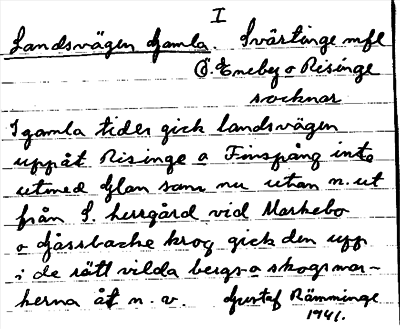 I
Landsvägen Gamla. Svärtinge mfl
Ö. Eneby o Risinge
socknar
I gamla tider gick landsvägen
uppåt Risinge o Finspång inte
utmed Glan som nu utan n. ut
från S. herrgård vid Markebo
o Gåssbacke krog gick den upp
i de rätt vilda bergs o skogsmar-
kerna åt n. v. Gustaf Rämminge
1941.